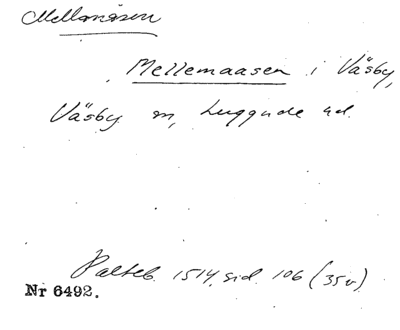 Mellanåsen
Mellemaasen i Väsby,
Väsby sn, Luggude hd.
Palteb. 1514, sid. 106 (35v)
Nr 6492.